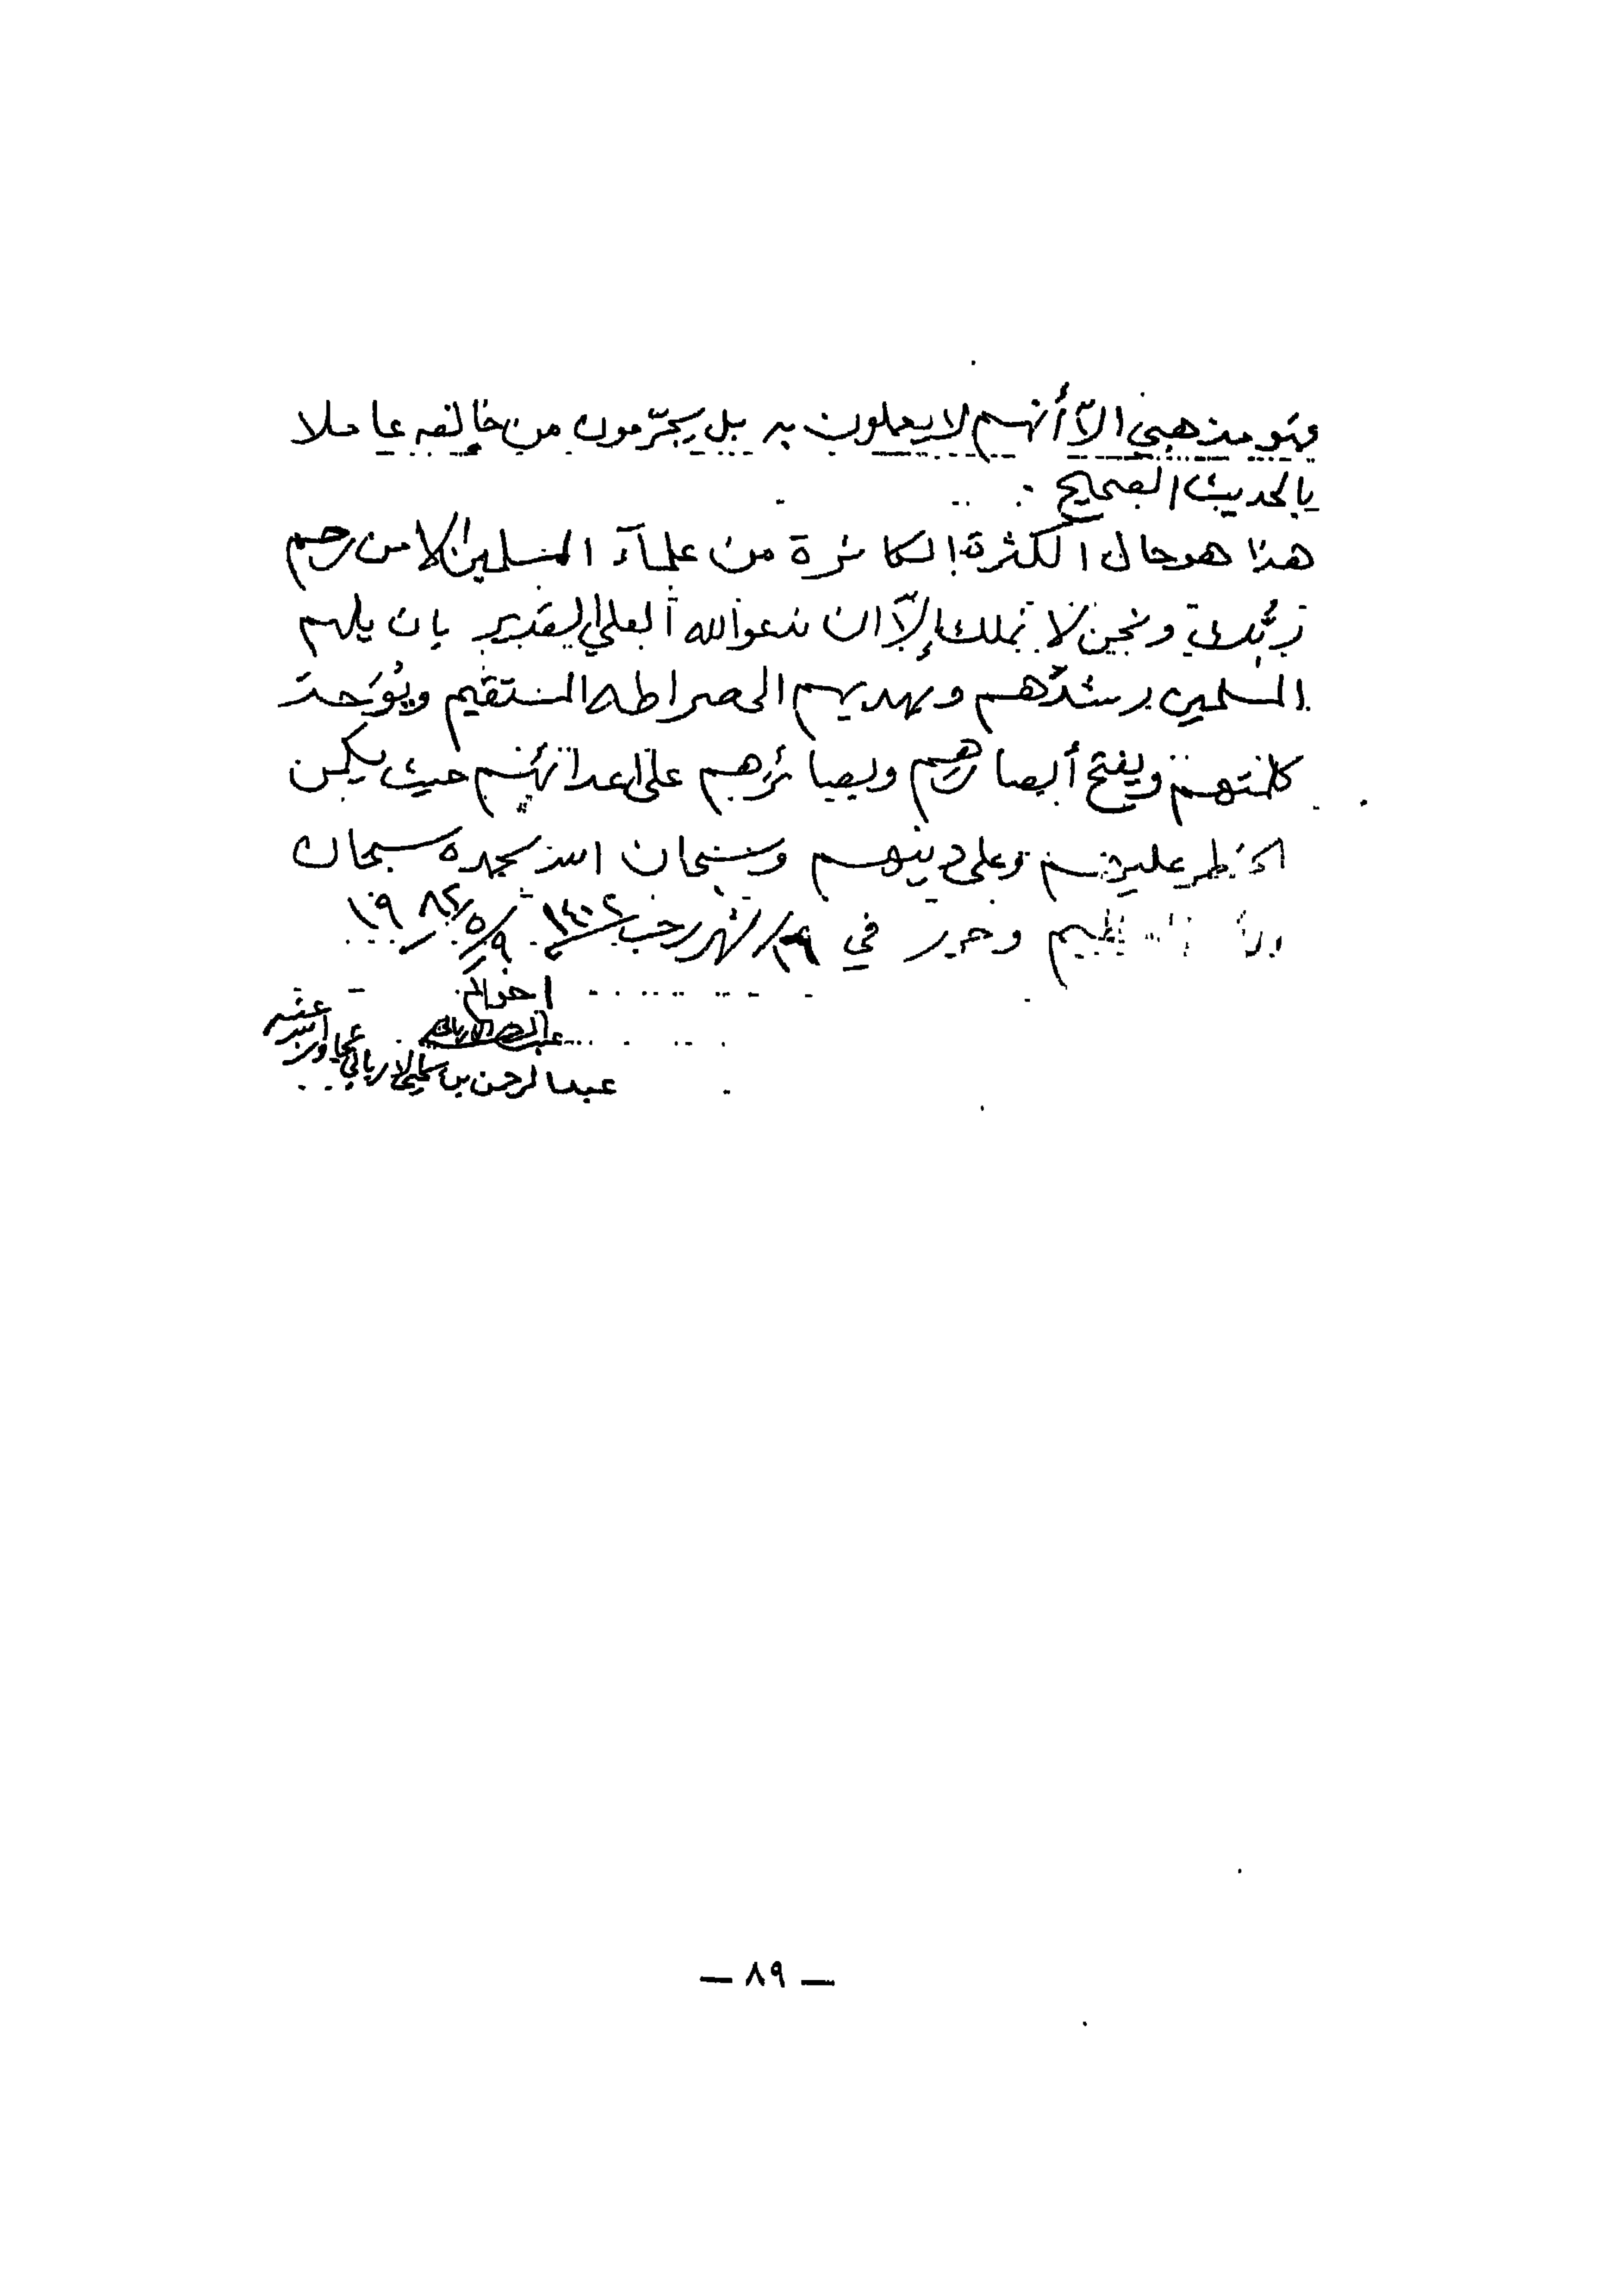 فهو مذهبي الاّ أنهم لا يعملون به بل يجرّمون من خالفه عاملا
بالحديث الصحيح .
هذا هو حال الكثرة الكاثرة من علمآء المسلمين الا من رحم
ربُّك ونحن لا نملك إلاّ ان ندعوا الله العلي القدير بان يلهم
المسلمين رشدَهم ويهديهم الى صراطه المستقيم ويُوَحد
كلمتهم ويفتح أبصارهم وبصائرهم على اعدائهم حيث يكمن
الخطر عليهم وعلى دينهم وسبحان الله بحمده سبحان
الله العظيم وحرر في / شهر رجب ١٤٠٢ ٩/٥/١٩٨٢
اخوكم
عبد الرحمن بن يحيى الارياني تجاوز الله عنه
— ٨٩ —